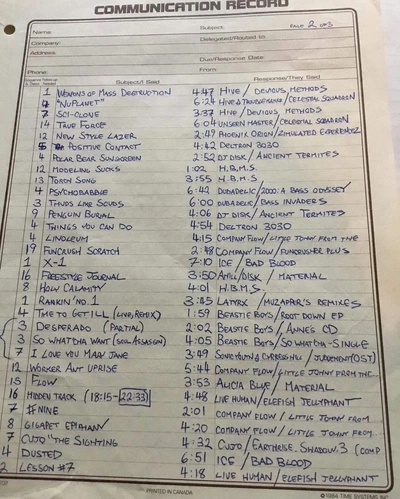 COMMUNICATION RECORD
Name: Subject: PAGE 2 OF 3
Company: Delegated/Routed to
Address: Due/Response Date
Phone: From
Subject/I Said Response/They Said
1 WEAPONS OF MASS DESTRUCTION 4:47 HIVE / DEVIOUS METHODS
4 "NUPLANET" 6:24 HIVE & / CELESTIAL SQUADRON
7 SCI-CLONE 3:37 HIVE / DEVIOUS METHODS
14 TRUE FORCE 6:04 UNSEEN MASTER / CELESTIAL SQUADRON
12 NEW STYLE LAZER 2:49 PHOENIX ORION / SIMULATED EXPERIENCE
5 POSITIVE CONTACT 4:42 DELTRON 3030
4 POLAR BEAR SUNSCREEN 2:52 DT DISK / ANCIENT TERMITES
12 MODELING SUCKS 1:02 H.B.M.S.
13 TORCH SONG 3:55 H.B.M.S.
4 PSYCHOBABBLE 6:42 DUBADELIC / 2000: A BASS ODYSSEY
3 THUDS LIKE SCUDS 6:00 DUBADELIC / BASS INVADERS
9 PENGUIN BURIAL 4:06 DT DISK / ANCIENT TERMITES
4 THINGS YOU CAN DO 4:54 DELTRON 3030
4 LINOLEUM 4:15 COMPANY FLOW / LITTLE JOHNNY FROM THE
19 FUNCRUSH SCRATCH 2:48 COMPANY FLOW / FUNCRUSHER PLUS
1 X-1 7:10 ICE / BAD BLOOD
16 FREESTYLE JOURNAL 3:50 / MATERIAL
8 HOLY CALAMITY 4:01 H.B.M.S.
1 RANKIN' NO. 1 3:45 LATYRX / MUZAPPER'S REMIXES
4 TIME TO GET ILL (LIVE, REMIX) 1:59 BEASTIE BOYS / ROOT DOWN EP
3 DESPERADO (PARTIAL) 2:02 BEASTIE BOYS / ANNE'S CD
3 SO WATCHA WANT (SOUL ASSASSIN) 4:05 BEASTIE BOYS / SO WHATCHA - SINGLE
7 I LOVE YOU MARY JANE 3:49 SONIC YOUTH & CYPRESS HILL / JUDGEMENT (OST)
12 WORKER ANT UPRISE 5:44 COMPANY FLOW / LITTLE JOHNNY FROM THE...
15 FLOW 3:53 ALICIA BLUE / MATERIAL
16 HIDDEN TRACK (18:15-22:33) 4:48 LIVE HUMAN / ELEFISH JELLYPHANT
7 #NINE 2:01 COMPANY FLOW / LITTLE JOHNNY FROM
8 GIGAPET EPIPHANY 4:20 COMPANY FLOW / LITTLE JOHNNY FROM...
7 CUJO "THE SIGHTING 4:32 CUJO / EARTHRISE.SHADOW.3 (COMP
4 DUSTED 6:51 ICE / BAD BLOOD
2 LESSON #7 4:18 LIVE HUMAN / ELEFISH JELLYPHANT
PRINTED IN CANADA © 1984 TIME SYSTEMS INC